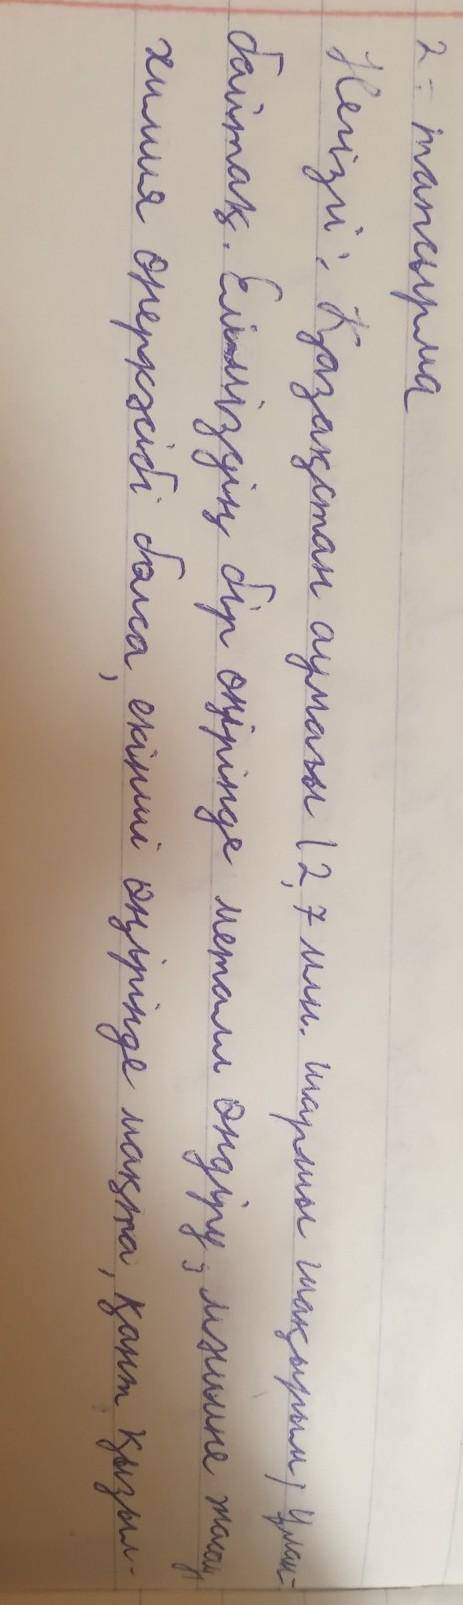 2- тапсырма
Негізгі: Қазақстан аумағы (2,7 млн. шаршы шақырым) ұлан-
байтақ. Еліміздің бір өңірінде металл өндіру, машине жасау,
химия өнеркәсібі болса, екінші өңірінде мақта, қант қызыл-